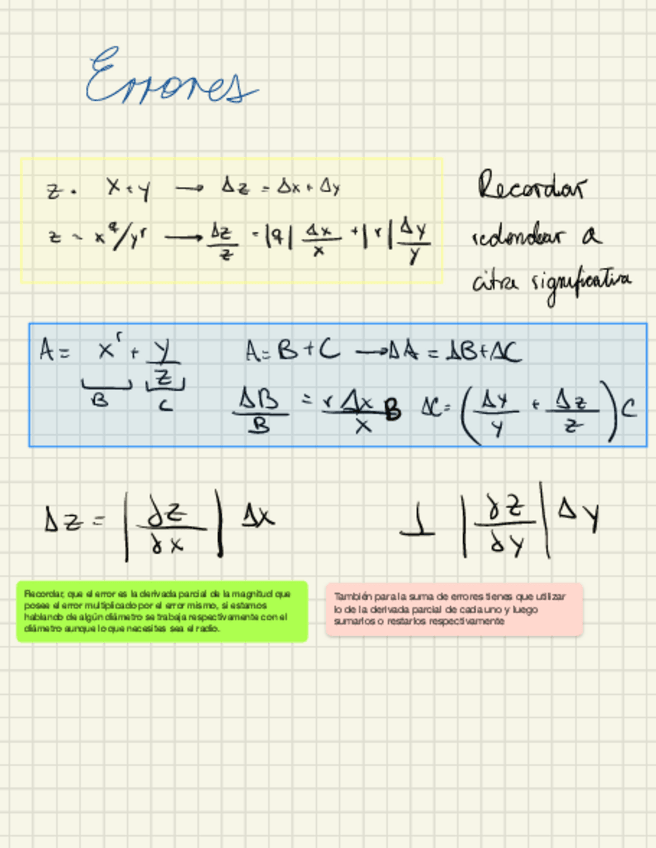 Errores
z = x + y → Δz = Δx + Δy
z = x^q/y^r → Δz/z = |q| Δx/x + |r| Δy/y
Recordar
redondear a
cifra significativa
A = x^r + y/z
B C
A = B + C → ΔA = ΔB + ΔC
ΔB/B = r Δx/x B ΔC = (Δy/y + Δz/z) C
Δz = |∂z/∂x| Δx |∂z/∂y| Δy
Recordar, que el error es la derivada parcial de la magnitud que
posee el error multiplicado por el error mismo, si estamos
hablando de algún diámetro se trabaja respectivamente con el
diámetro aunque lo que necesites sea el radio.
También para la suma de errores tienes que utilizar
lo de la derivada parcial de cada uno y luego
sumarlos o restarlos respectivamente